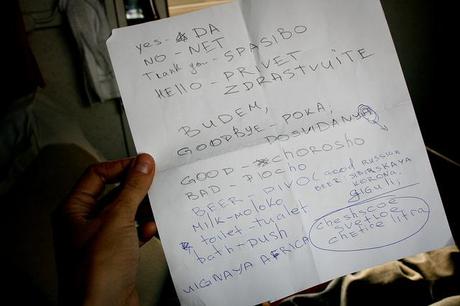 yes - DA
NO - NET
Thank you - SPASIBO
HELLO - PRIVET
ZDRASTVUITE
BUDEM,
GOODBYE - POKA,
DOSVIDANYA
GOOD - CHOROSHO
BAD - PLOCHO
BEER - PIVO (good RUSSIAN
BEER SIBIRSKAYA
KORONA,
giguli,
Milk - moloko
toilet - tualet
bath - push
UIGNAYA AFRICA
cheshscoe
svetloe
chetire litra